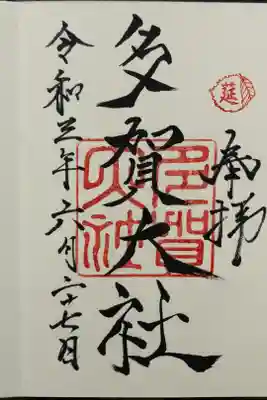 奉拝
莚
多賀大社
多賀大社
令和三年六月二十七日